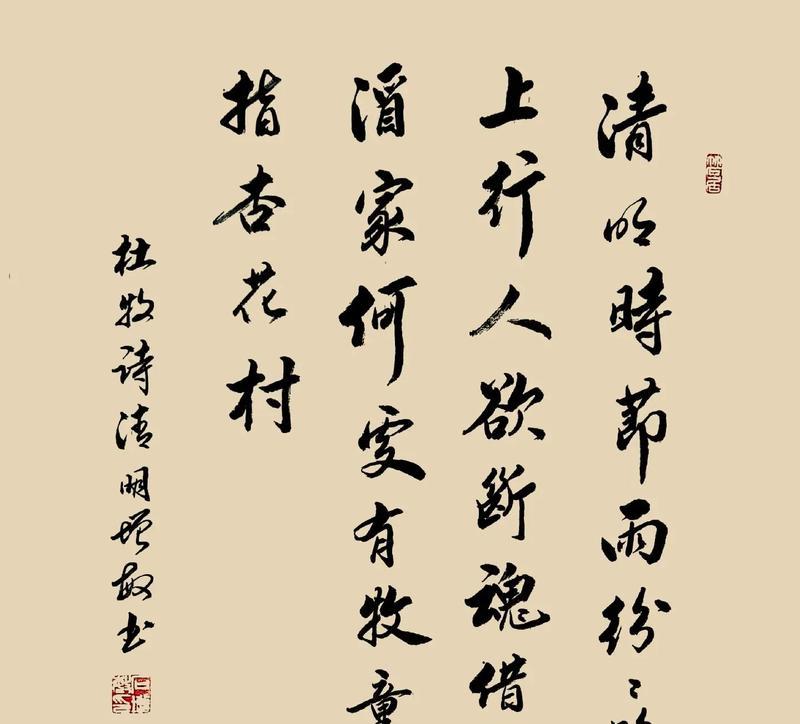 清明時節雨紛〻
上行人欲斷魂借
酒家何處有牧童
指杏花村
杜牧诗清明增敏书